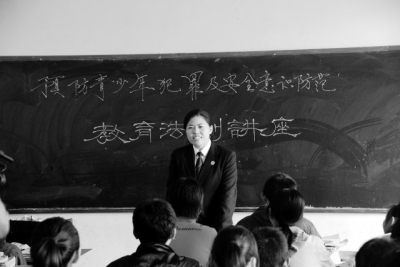 预防青少年犯罪及安全意识防范
教育法制讲座